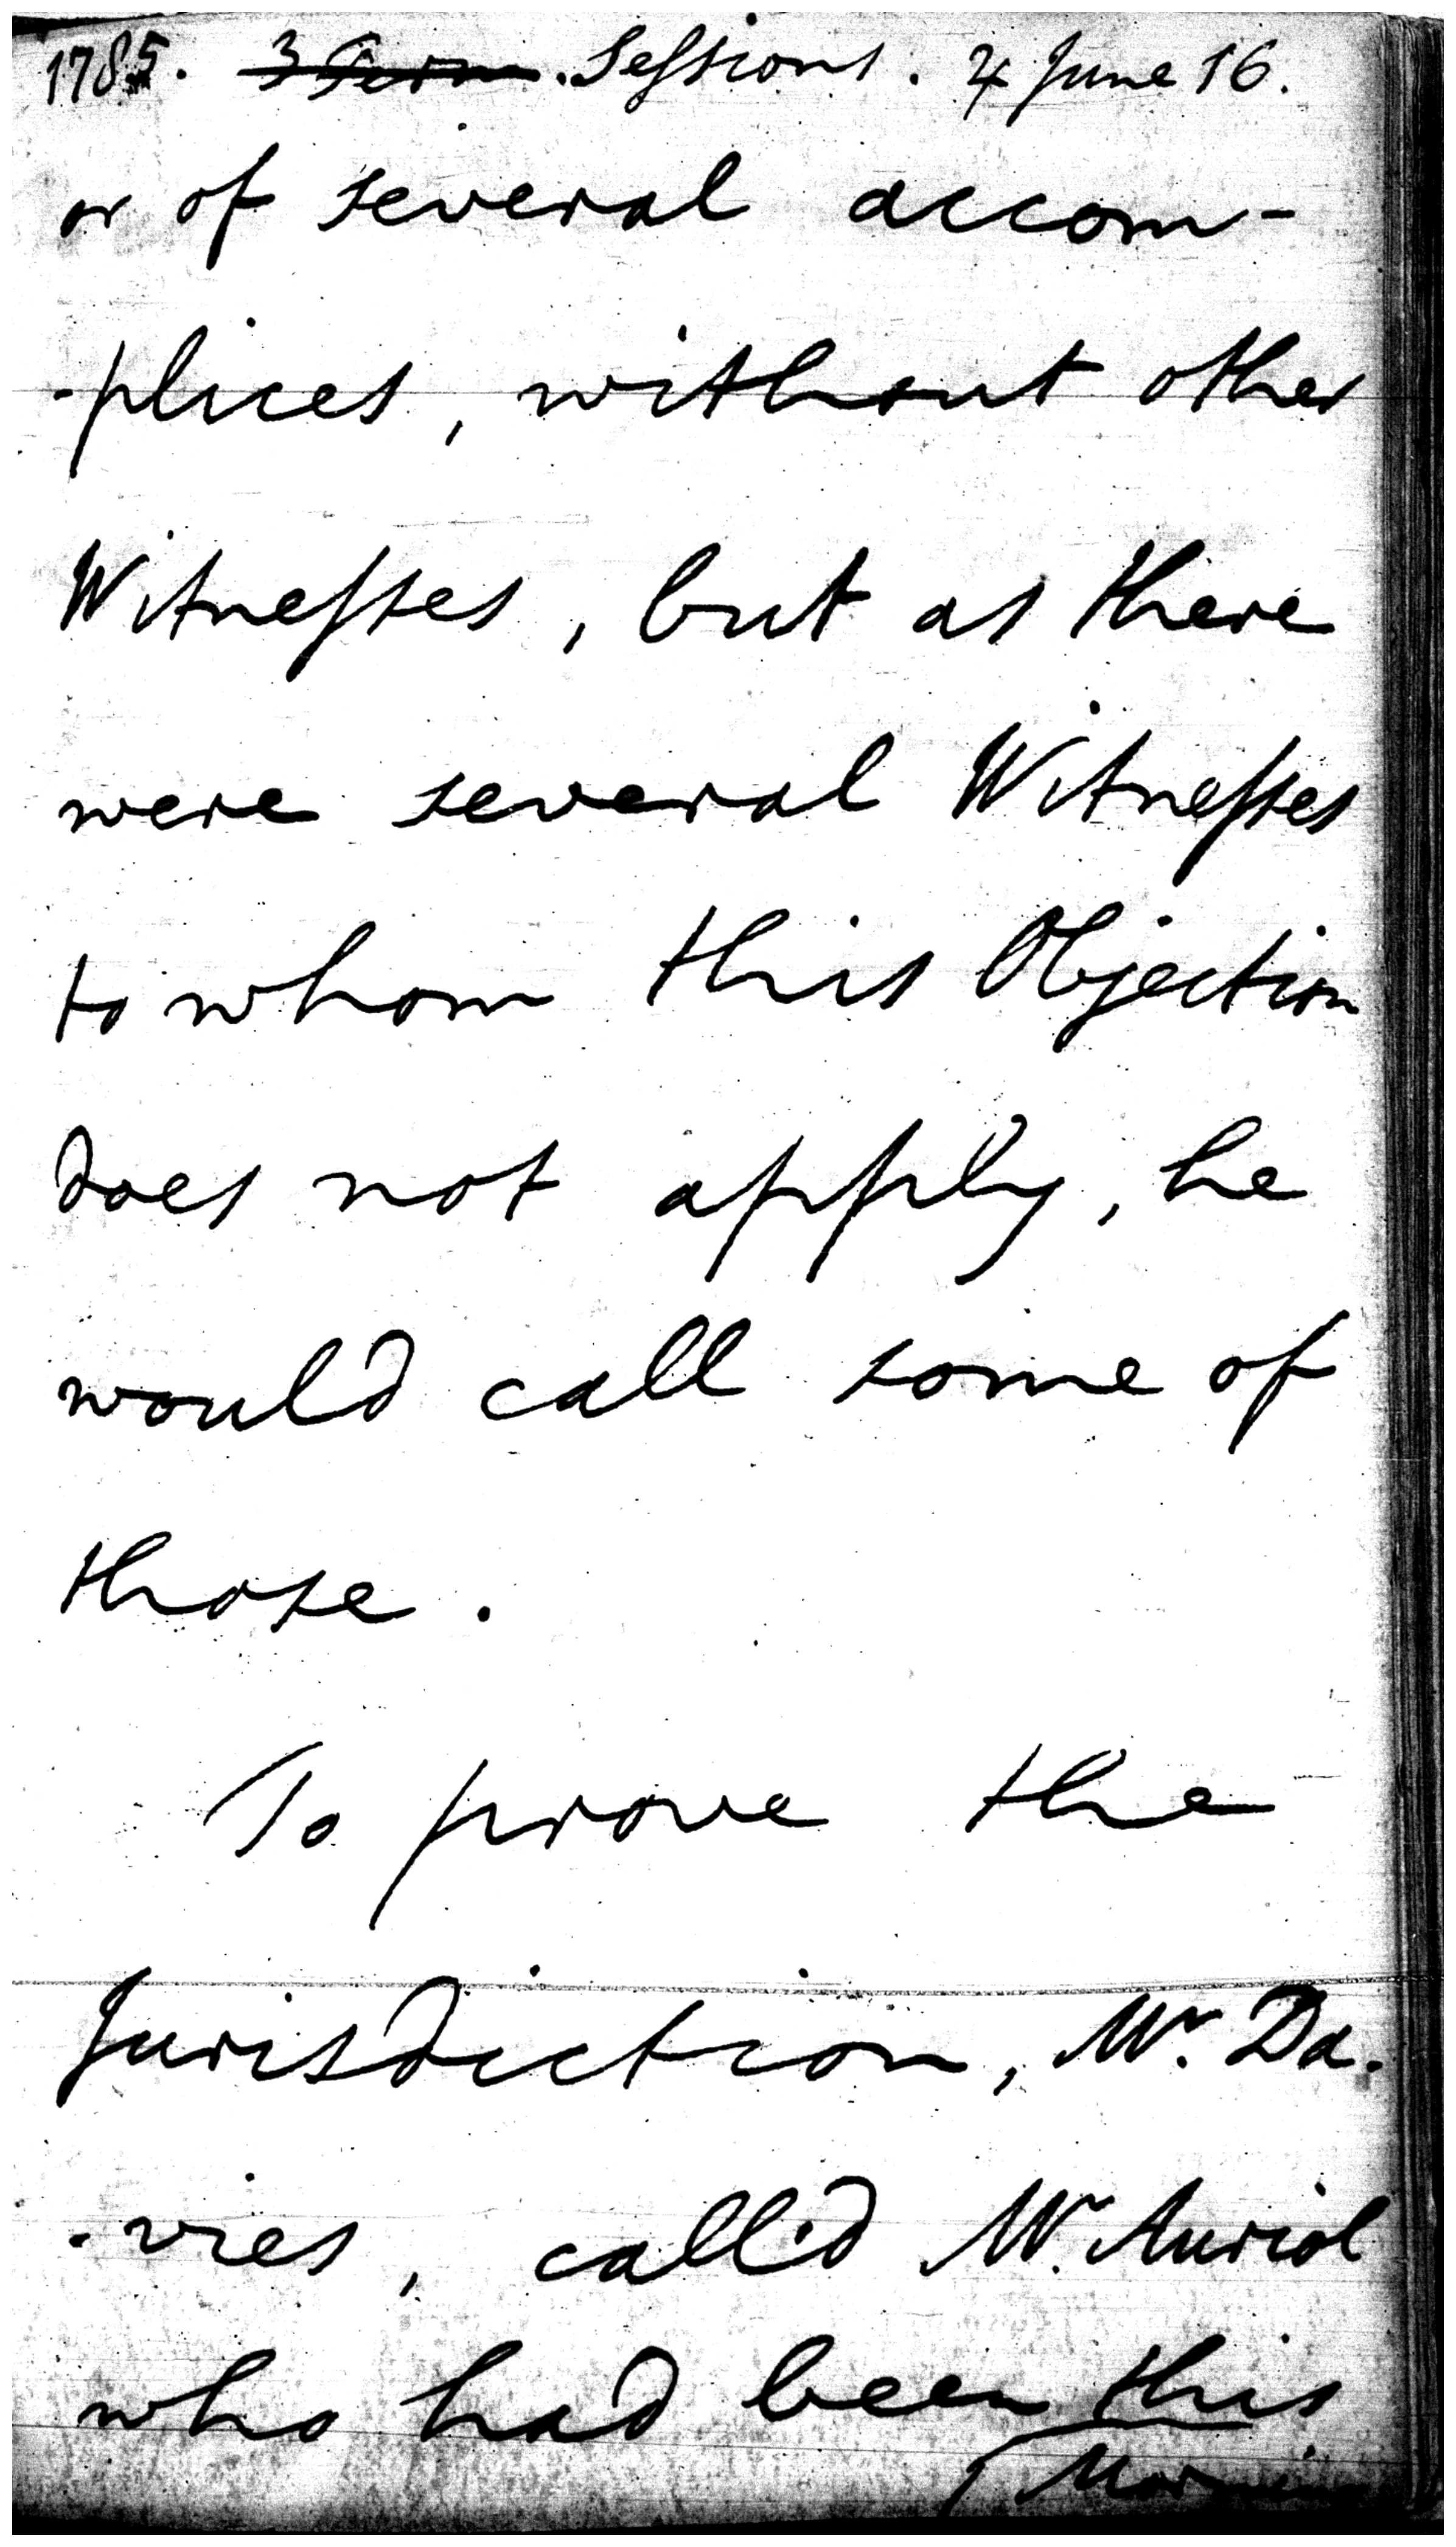 1785. 3 Term. Sessions. 4 June 16.
or of several accom-
-plices, without other
Witnesses, but as there
were several Witnesses
to whom this Objection
does not apply, he
would call some of
those.
To prove the
Jurisdiction, Mr. Da-
-vies, call'd Mr. Auriol
who had been this
Morning